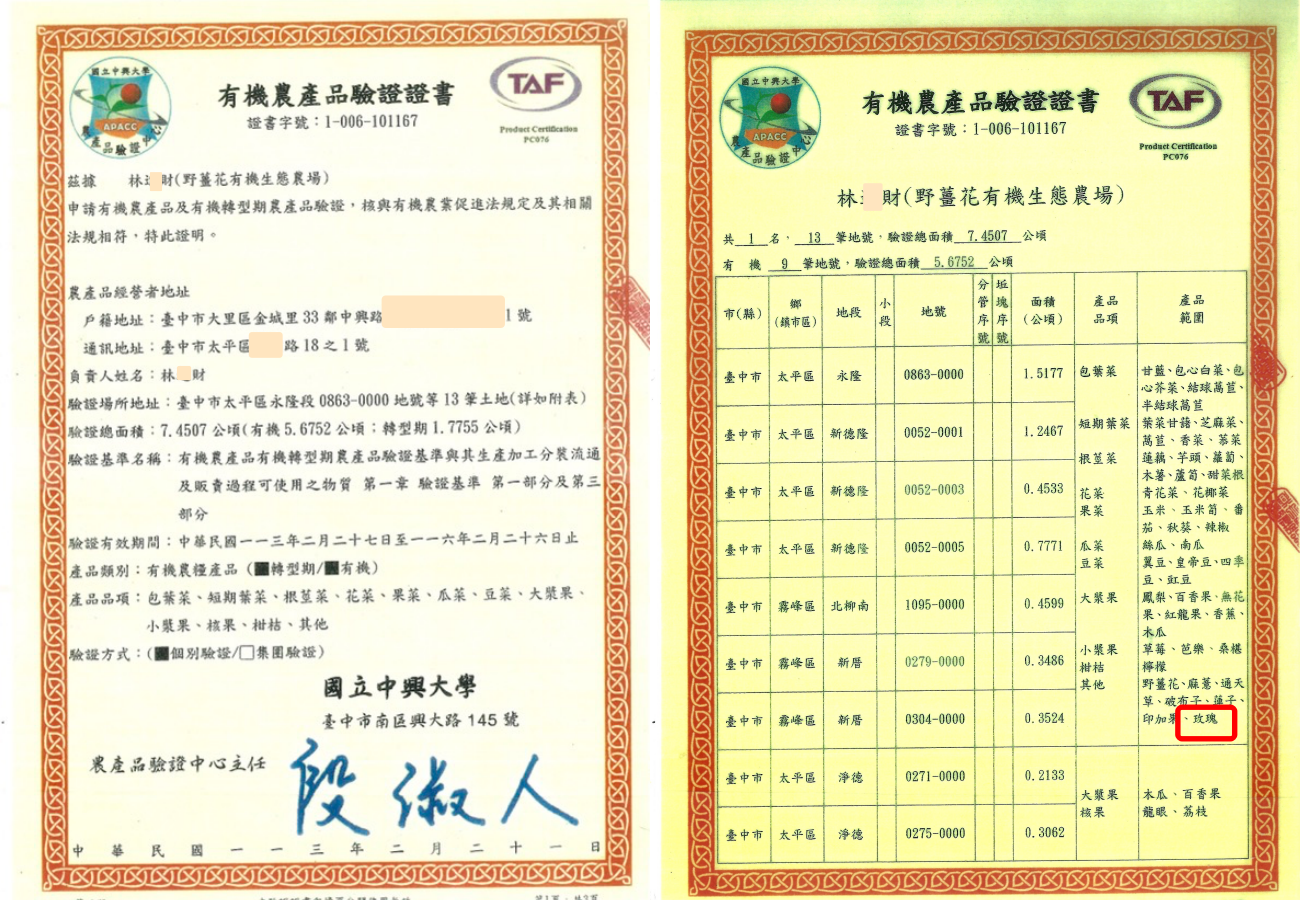 國立中興大學
APACC
農產品驗證中心
有機農產品驗證證書
證書字號：1-006-101167
TAF
Product Certification
PC076
茲據 林 財(野薑花有機生態農場)
申請有機農產品及有機轉型期農產品驗證，核與有機農業促進法規定及其相關
法規相符，特此證明。
農產品經營者地址
戶籍地址：臺中市大里區金城里 33 鄰中興路 1 號
通訊地址：臺中市太平區 路 18 之 1 號
負責人姓名：林 財
驗證場所地址：臺中市太平區永隆段 0863-0000 地號等 13 筆土地(詳如附表)
驗證總面積：7.4507 公頃(有機 5.6752 公頃；轉型期 1.7755 公頃)
驗證基準名稱：有機農產品有機轉型期農產品驗證基準與其生產加工分裝流通
及販賣過程可使用之物質 第一章 驗證基準 第一部分及第三
部分
驗證有效期間：中華民國一一三年二月二十七日至一一六年二月二十六日止
產品類別：有機農糧產品 (■轉型期/■有機)
產品品項：包葉菜、短期葉菜、根莖菜、花菜、果菜、瓜菜、豆菜、大漿果、
小漿果、核果、柑桔、其他
驗證方式：(■個別驗證/□集團驗證)
國立中興大學
臺中市南區興大路 145 號
農產品驗證中心主任
段淑人
中華民國一一三年二月二十一日
國立中興大學
APACC
農產品驗證中心
有機農產品驗證證書
證書字號：1-006-101167
TAF
Product Certification
PC076
林 財(野薑花有機生態農場)
共 1 名， 13 筆地號，驗證總面積 7.4507 公頃
有 機 9 筆地號，驗證總面積 5.6752 公頃
市(縣) 鄉(鎮市區) 地段 小段 地號 分管序號 坵塊序號 面積(公頃) 產品品項 產品範圍
臺中市 太平區 永隆 0863-0000 1.5177
臺中市 太平區 新德隆 0052-0001 1.2467
臺中市 太平區 新德隆 0052-0003 0.4533
臺中市 太平區 新德隆 0052-0005 0.7771
臺中市 霧峰區 北柳南 1095-0000 0.4599
臺中市 霧峰區 新厝 0279-0000 0.3486
臺中市 霧峰區 新厝 0304-0000 0.3524
包葉菜
短期葉菜
根莖菜
花菜
果菜
瓜菜
豆菜
大漿果
小漿果
柑桔
其他
甘藍、包心白菜、包
心芥菜、結球萵苣、
半結球萵苣
葉菜甘藷、芝麻菜、
萵苣、香菜、茶菜
蓮藕、芋頭、蘿蔔、
木薯、蘆筍、甜菜根
青花菜、花椰菜
玉米、玉米筍、番
茄、秋葵、辣椒
絲瓜、南瓜
翼豆、皇帝豆、四季
豆、豇豆
鳳梨、百香果、無花
果、紅龍果、香蕉、
木瓜
草莓、芭樂、桑椹
檸檬
野薑花、麻薏、通天
草、破布子、蓮子、
印加果、玫瑰
臺中市 太平區 淨德 0271-0000 0.2133
臺中市 太平區 淨德 0275-0000 0.3062
大漿果
核果
木瓜、百香果
龍眼、荔枝